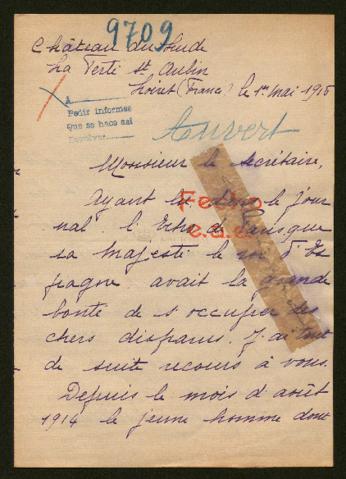 9709
Château du Lude
La Ferté St Aubin
Loiret (France) le 1er mai 1915
A
Pedir informes
que se hace así
Auvert
Monsieur le Secrétaire,
Ayant lu dans le jour
nal l'Echo de Paris, que
sa majesté le roi d'Es
pagne avait la grande
bonté de s'occuper des
chers disparus. J'ai tout
de suite recours à vous.
Depuis le mois d'août
1914 le jeune homme dont